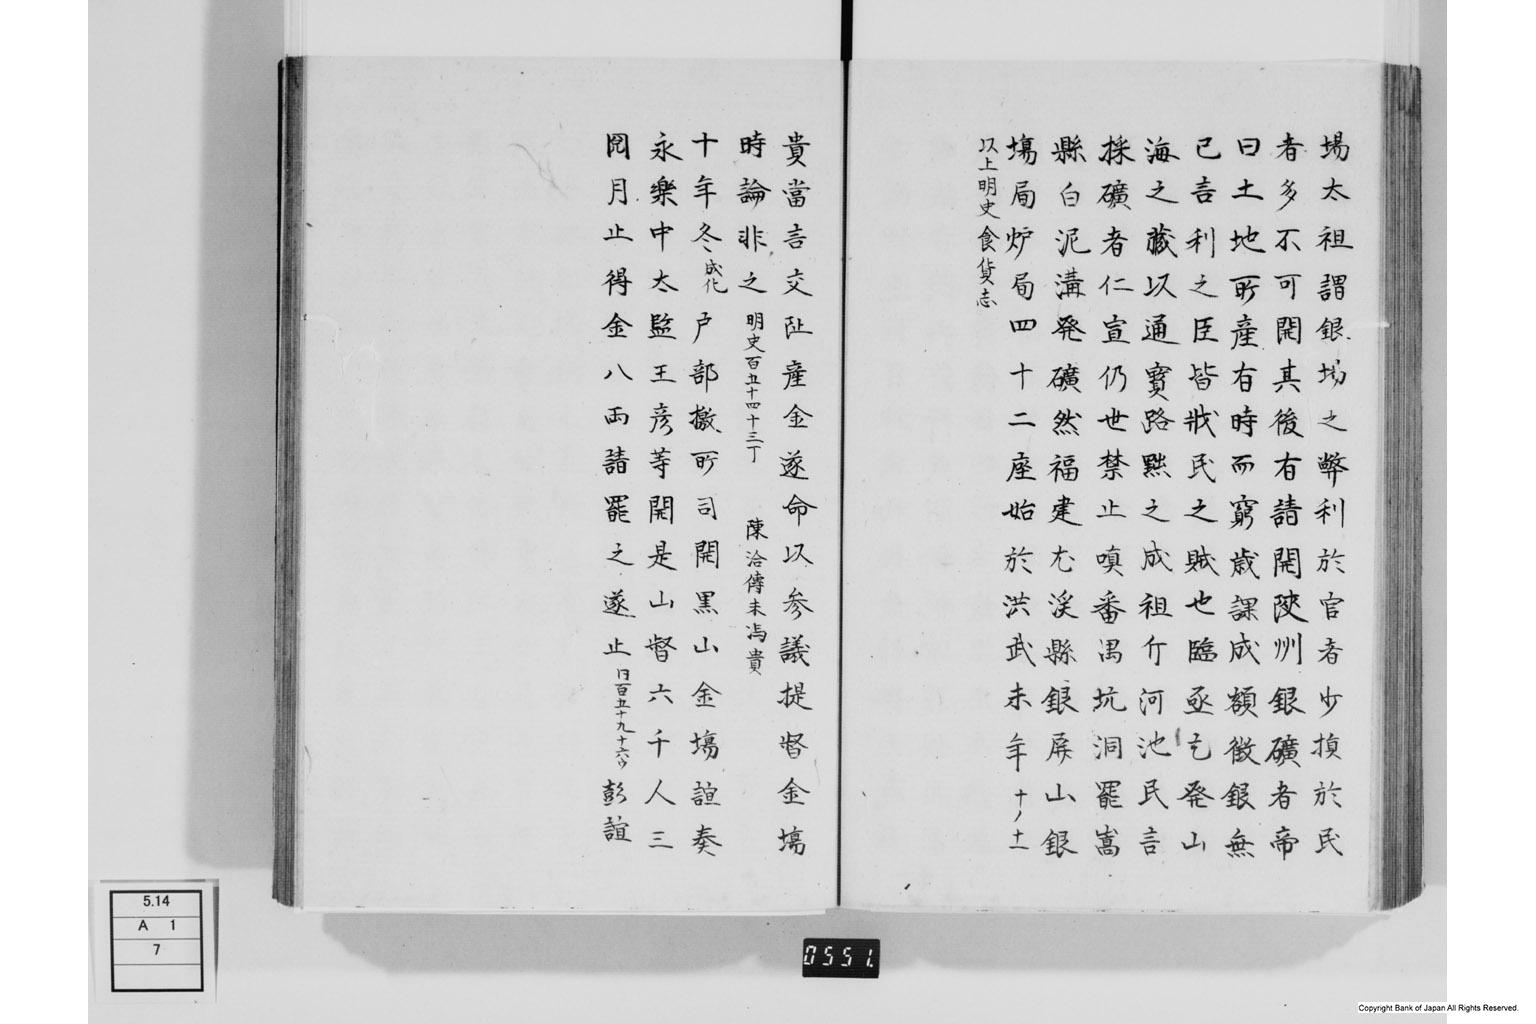 場太祖謂銀場之弊利於官者少損於民
者多不可開其後有請開陝州銀礦者帝
曰土地所産有時而窮歳課成額徴銀無
已言利之臣皆戕民之賊也臨亟乞発山
海之藏以通寶路黜之成祖斤河池民言
採礦者仁宣仍世禁止嗔番禺坑洞罷嵩
縣白泥溝発礦然福建尤溪縣銀屏山銀
塲局炉局四十二座始於洪武末年 十ノ十一
以上明史食貨志
貴當言交阯産金遂命以参議提督金塲
時論非之 明史百五十四十三丁 陳洽傳末馮貴
十年冬 成化 户部檄所司開黒山金塲誼奏
永樂中太監王彦等開是山督六千人三
閲月止得金八両請罷之遂止 同百五十九十六ウ 彭誼
5.14
A 1
7
0551.
Copyright Bank of Japan All Rights Reserved.